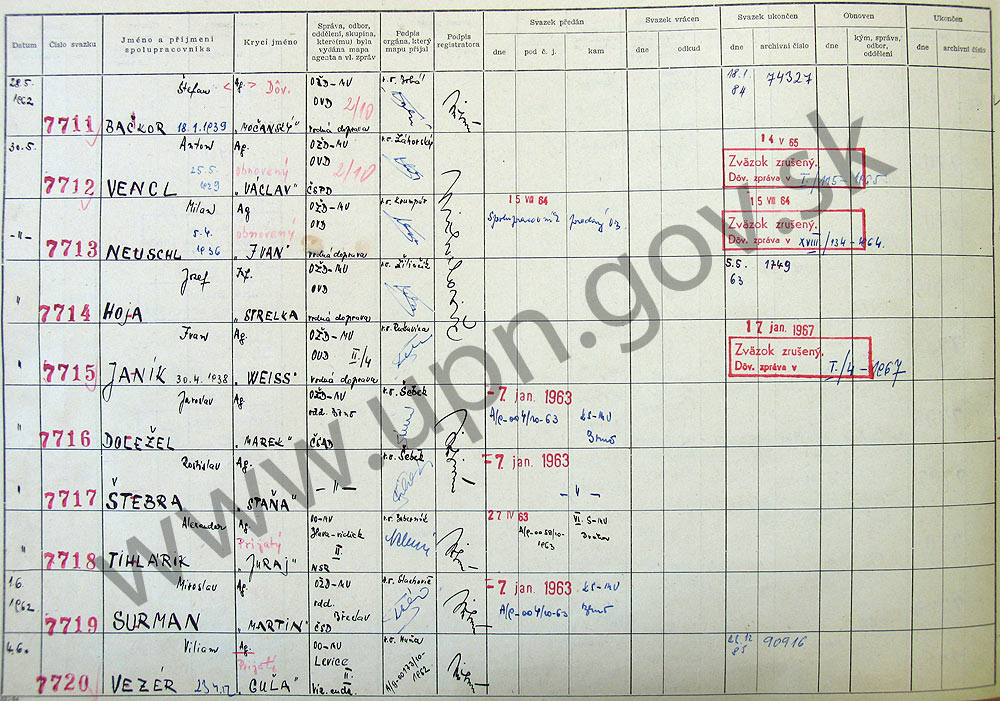 Datum
Číslo svazku
Jméno a příjmení
spolupracovníka
Krycí jméno
Správa, odbor,
oddělení, skupina,
které(mu) byla
vydána mapa
agenta a vl. zpráv
Podpis
orgána, který
mapu přijal
Podpis
registrátora
Svazek předán
dne
pod č. j.
kam
Svazek vrácen
dne
odkud
Svazek ukončen
dne
archivní číslo
Obnoven
dne
kým, správa,
odbor,
oddělení
Ukončen
dne
archivní číslo
28.5.
1962
7711
Štefan
BAČKOR 18.1.1939
Ag. Dôv.
"MOČANSKÝ"
OŽD-MV
OVD 2/10
vodná doprava
18.1.
84
74327
30.5.
7712
Anton
25.5.
1929
VENCL
Ag.
obnovený
"VÁCLAV"
OŽD-MV
OVD 2/10
ČSPD
14 V 65
Zväzok zrušený.
Dôv. zpráva v
-"-
7713
Milan
5.4.
1936
NEUSCHL
Ag
obnovený
"IVAN"
OŽD-MV
OVD
vodná doprava
15 VII 64
Spolupracovník predaný
15 VII 64
Zväzok zrušený.
Dôv. zpráva v XVIII/134-1964.
"
7714
Jozef
HOJA
"STRELKA
OŽD-MV
OVD
vodná doprava
5.5.
63
1749
"
7715
Ivan
JANÍK 30.4.1938
Ag.
"WEISS"
OŽD-MV
OVD II/4
vodná doprava
17 jan. 1967
Zväzok zrušený.
Dôv. zpráva v I./4-1967
"
7716
Jaroslav
DOLEŽEL
Ag.
"MAREK"
OŽD-MV
odd. Brno
ČSAD
Šebek
-7 jan. 1963
A/P-004/10-63
KS-MV
Brno
"
7717
Rostislav
ŠTEBRA
Ag.
"STAŇA"
-"-
Šebek
-7 jan. 1963
-"-
"
7718
Alexander
TIHLÁRIK
Ag.
Prijatý
"JURAJ"
OO-MV
II
NSR
27 IV 63
1963
"
1.6.
1962
7719
Miroslav
SURMAN
Ag.
"MARTIN"
OŽD-MV
odd.
Břeclav
ČSD
-7 jan. 1963
A/P-004/10-63
KS-MV
Brno
4.6.
7720
Viliam
VEZÉR
Ag.
Prijatý
"GUĽA"
OO-MV
Levice
II.
1962
85
90916
www.upn.gov.sk